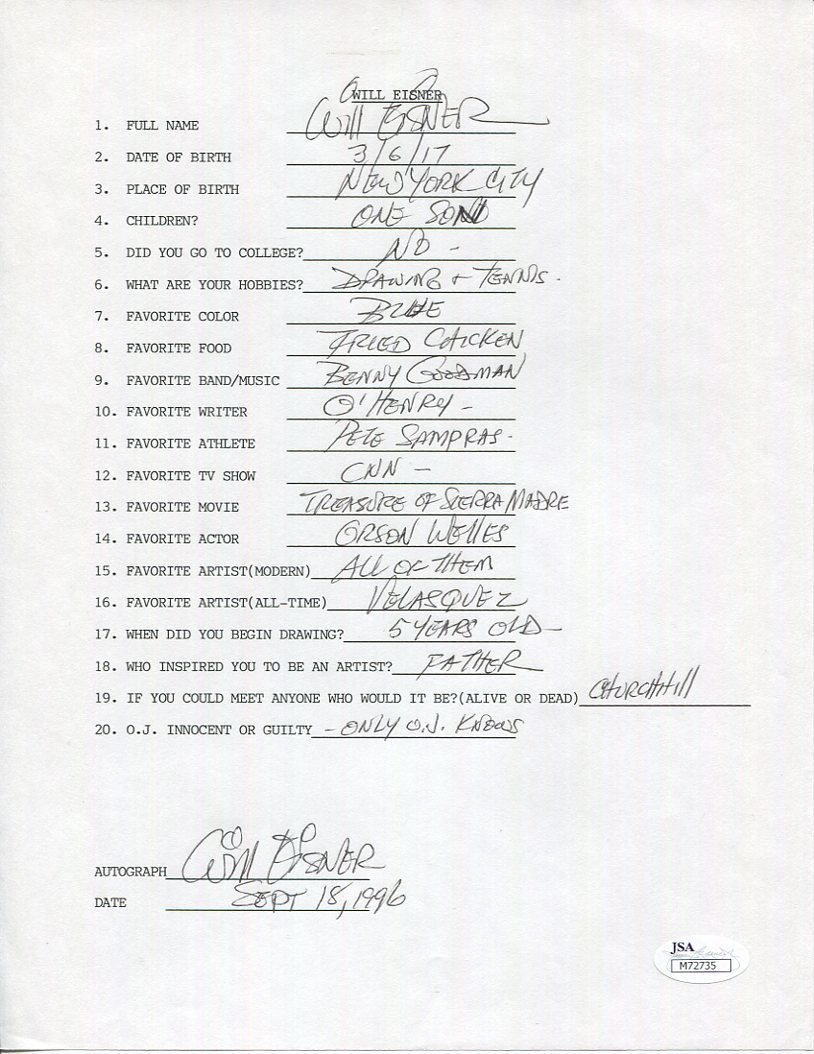 WILL EISNER
1. FULL NAME Will EISNER
2. DATE OF BIRTH 3/6/17
3. PLACE OF BIRTH NEW YORK CITY
4. CHILDREN? ONE SON
5. DID YOU GO TO COLLEGE? NO -
6. WHAT ARE YOUR HOBBIES? DRAWING + TENNIS.
7. FAVORITE COLOR BLUE
8. FAVORITE FOOD FRIED CHICKEN
9. FAVORITE BAND/MUSIC BENNY GOODMAN
10. FAVORITE WRITER O'HENRY -
11. FAVORITE ATHLETE PETE SAMPRAS.
12. FAVORITE TV SHOW CNN -
13. FAVORITE MOVIE TREASURE OF SIERRA MADRE
14. FAVORITE ACTOR ORSON WELLES
15. FAVORITE ARTIST(MODERN) ALL OF THEM
16. FAVORITE ARTIST(ALL-TIME) VELASQUEZ
17. WHEN DID YOU BEGIN DRAWING? 5 YEARS OLD -
18. WHO INSPIRED YOU TO BE AN ARTIST? FATHER
19. IF YOU COULD MEET ANYONE WHO WOULD IT BE?(ALIVE OR DEAD) CHURCHill
20. O.J. INNOCENT OR GUILTY - ONLY O.J. KNOWS
AUTOGRAPH Will EISNER
DATE SEPT 18, 1996
JSA
M72735